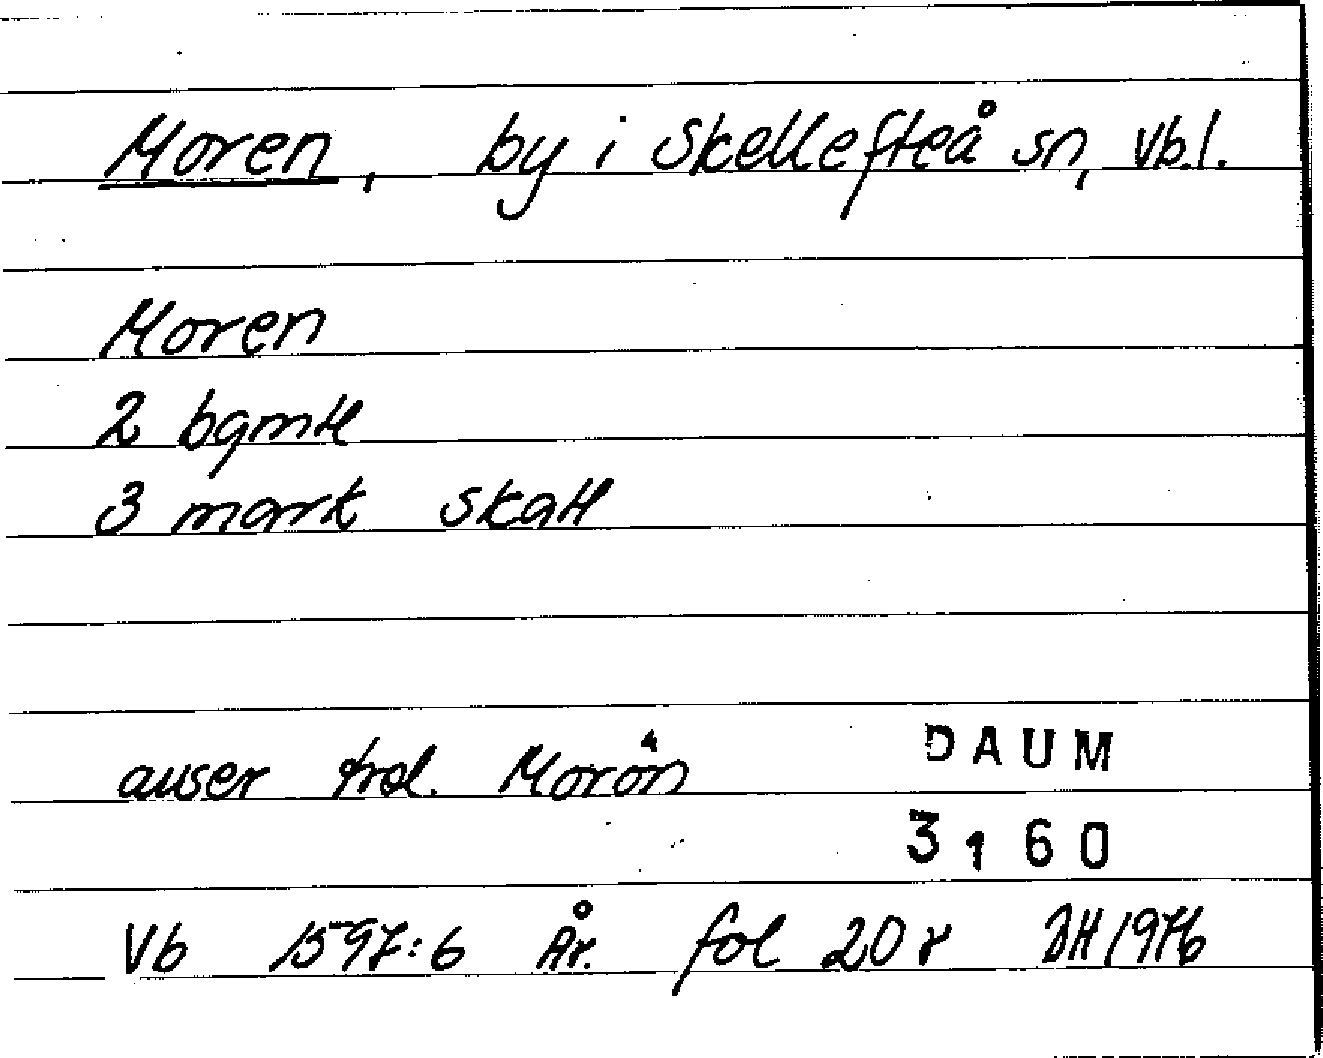 Moren, by i Skellefteå sn, Vb.l.
Moren
2 bgmtl
3 mark skatt
auser trol. Morön
DAUM
3160
Vb 1597:6 År. fol 20 r JH 1976